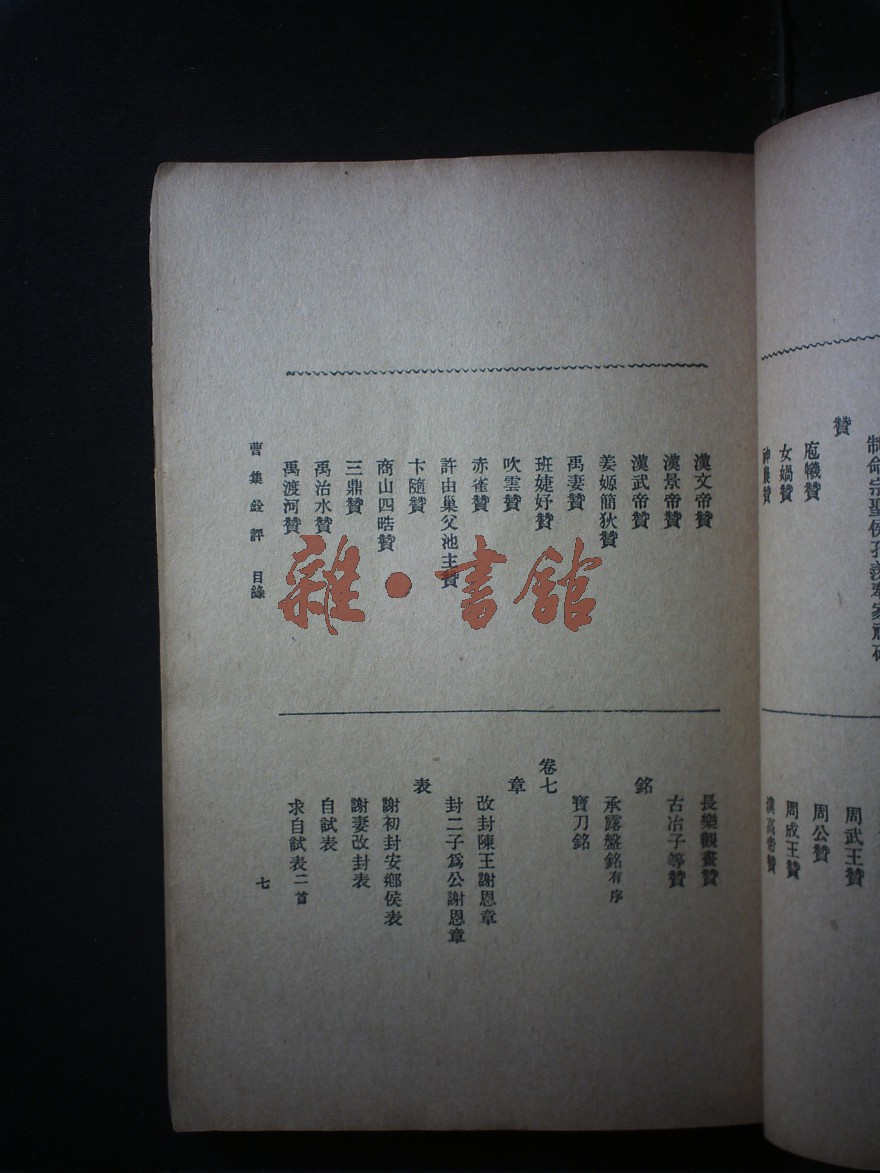 制命宗聖侯孔羨奉家祀碑
贊
庖犧贊
女媧贊
神農贊
周武王贊
周公贊
周成王贊
漢高帝贊
漢文帝贊
漢景帝贊
漢武帝贊
姜嫄簡狄贊
禹妻贊
班婕妤贊
吹雲贊
赤雀贊
許由巢父池主贊
卞隨贊
商山四晧贊
三鼎贊
禹治水贊
禹渡河贊
長樂觀畫贊
古冶子等贊
銘
承露盤銘有序
寶刀銘
卷七
章
改封陳王謝恩章
封二子爲公謝恩章
表
謝初封安鄉侯表
謝妻改封表
自試表
求自試表二首
曹集銓評 目錄
七
雜·書館